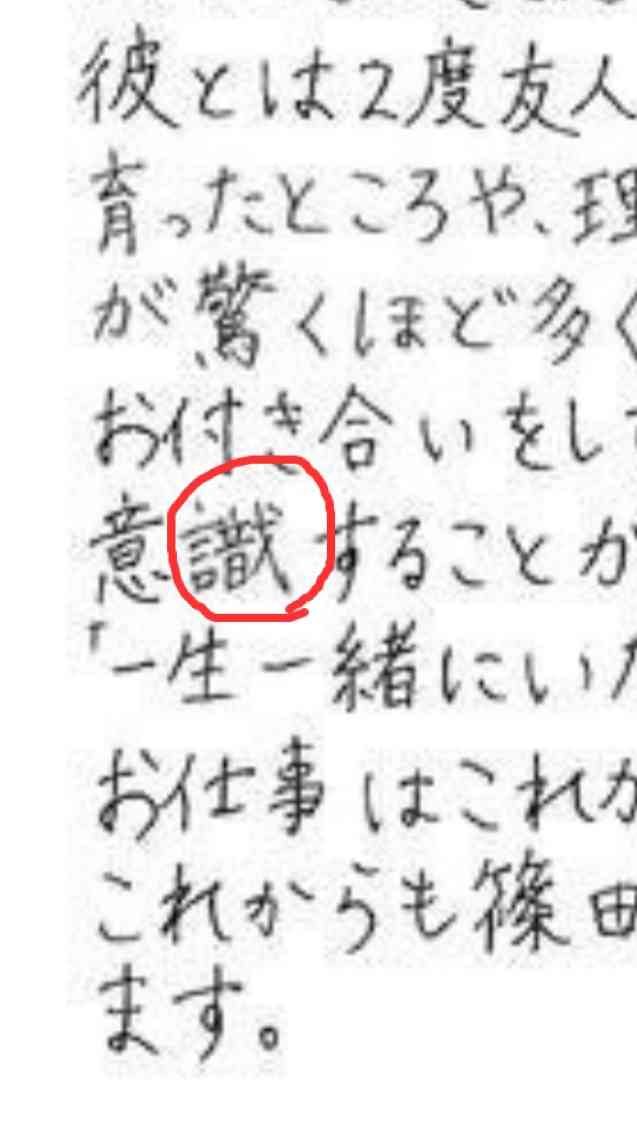 彼とは2度友人
育ったところや、理
が驚くほど多く
お付き合いをして
意識することが
「一生一緒にいた
お仕事はこれか
これからも篠田
ます。